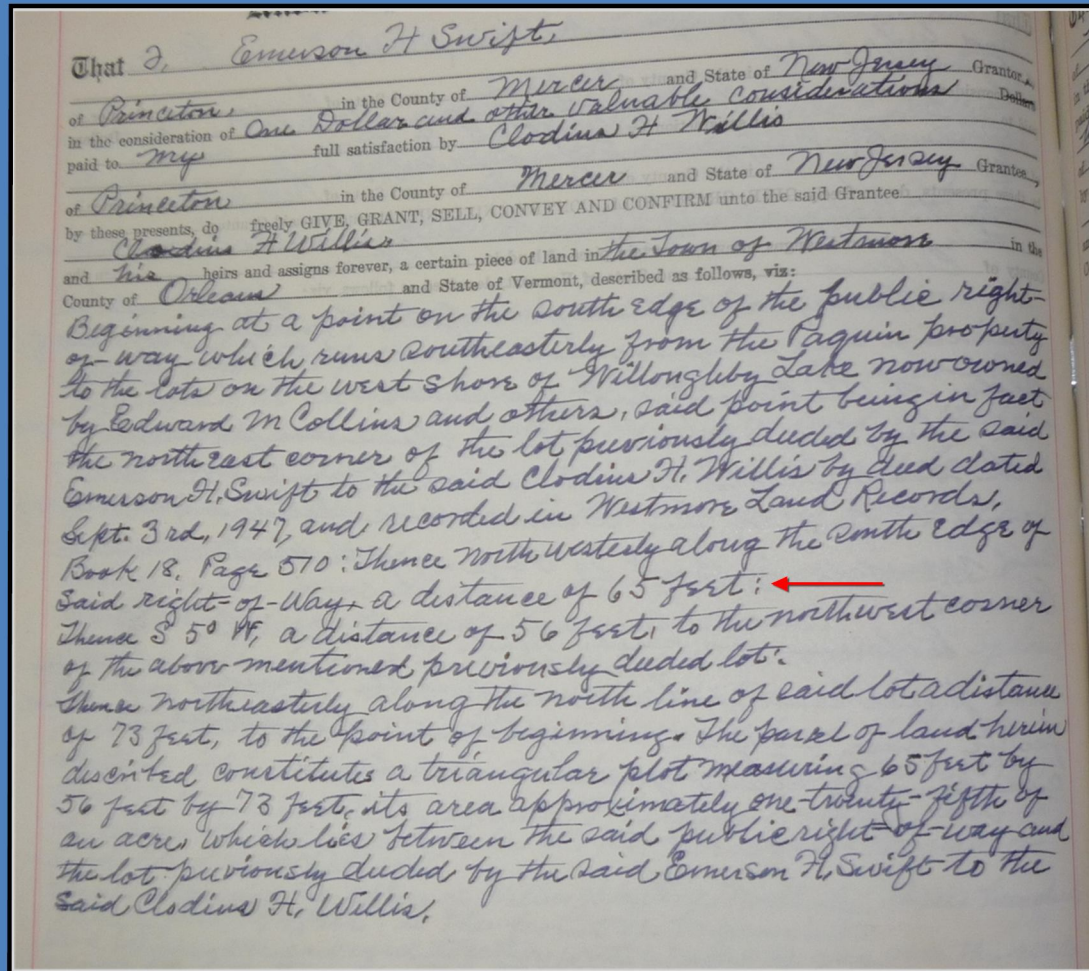 That I, Emerson H Swift,
of Princeton, in the County of Mercer and State of New Jersey Grantor,
in the consideration of One Dollar and other valuable considerations Dollars
paid to my full satisfaction by Clodius H Willis
of Princeton in the County of Mercer and State of New Jersey Grantee,
by these presents, do freely GIVE, GRANT, SELL, CONVEY AND CONFIRM unto the said Grantee
Clodius H Willis
and his heirs and assigns forever, a certain piece of land in the Town of Westmore in the
County of Orleans and State of Vermont, described as follows, viz:
Beginning at a point on the south edge of the public right-
of-way which runs southeasterly from the Paquin property
to the lots on the west shore of Willoughby Lake now owned
by Edward M Collins and others, said point being in fact
the northeast corner of the lot previously deeded by the said
Emerson H. Swift to the said Clodius H. Willis by deed dated
Sept. 3rd, 1947, and recorded in Westmore Land Records,
Book 18, Page 570: Thence northwesterly along the south edge of
said right-of-way, a distance of 65 feet:
Thence S 5° W, a distance of 56 feet, to the northwest corner
of the above mentioned previously deeded lot:
Thence northeasterly along the north line of said lot a distance
of 73 feet, to the point of beginning. The parcel of land herein
described constitutes a triangular plot measuring 65 feet by
56 feet by 73 feet, its area approximately one-twenty-fifth of
an acre, which lies between the said public right-of-way and
the lot previously deeded by the said Emerson H. Swift to the
said Clodius H. Willis.